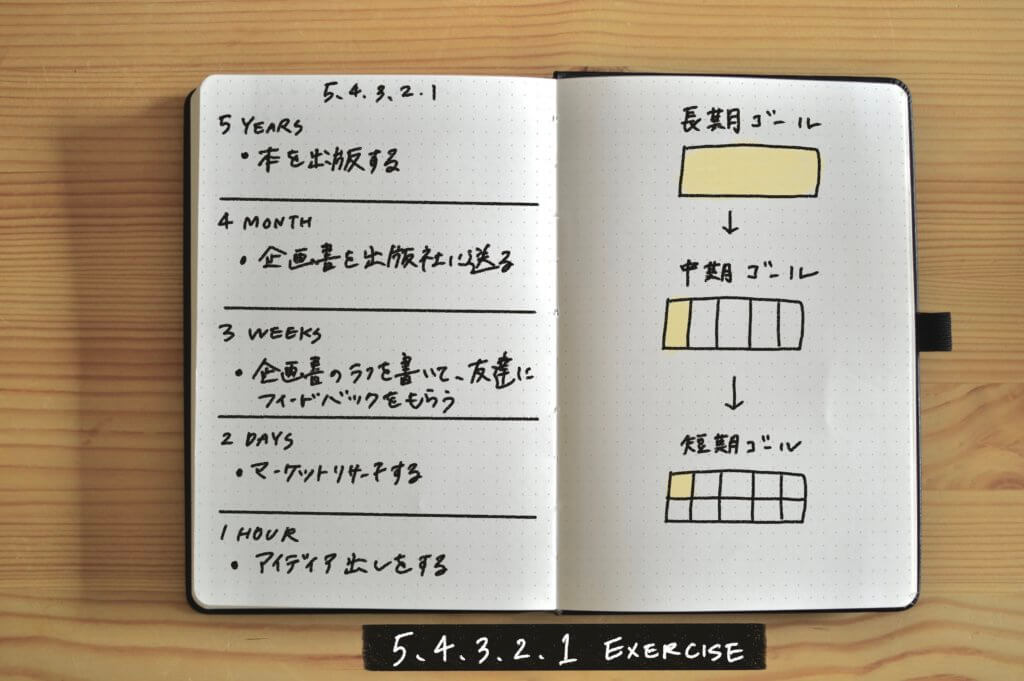 5.4.3.2.1
5 YEARS
• 本を出版する
4 MONTH
• 企画書を出版社に送る
3 WEEKS
• 企画書のラフを書いて、友達に
フィードバックをもらう
2 DAYS
• マーケットリサーチする
1 HOUR
• アイディア出しをする
長期ゴール
中期ゴール
短期ゴール
5.4.3.2.1 EXERCISE